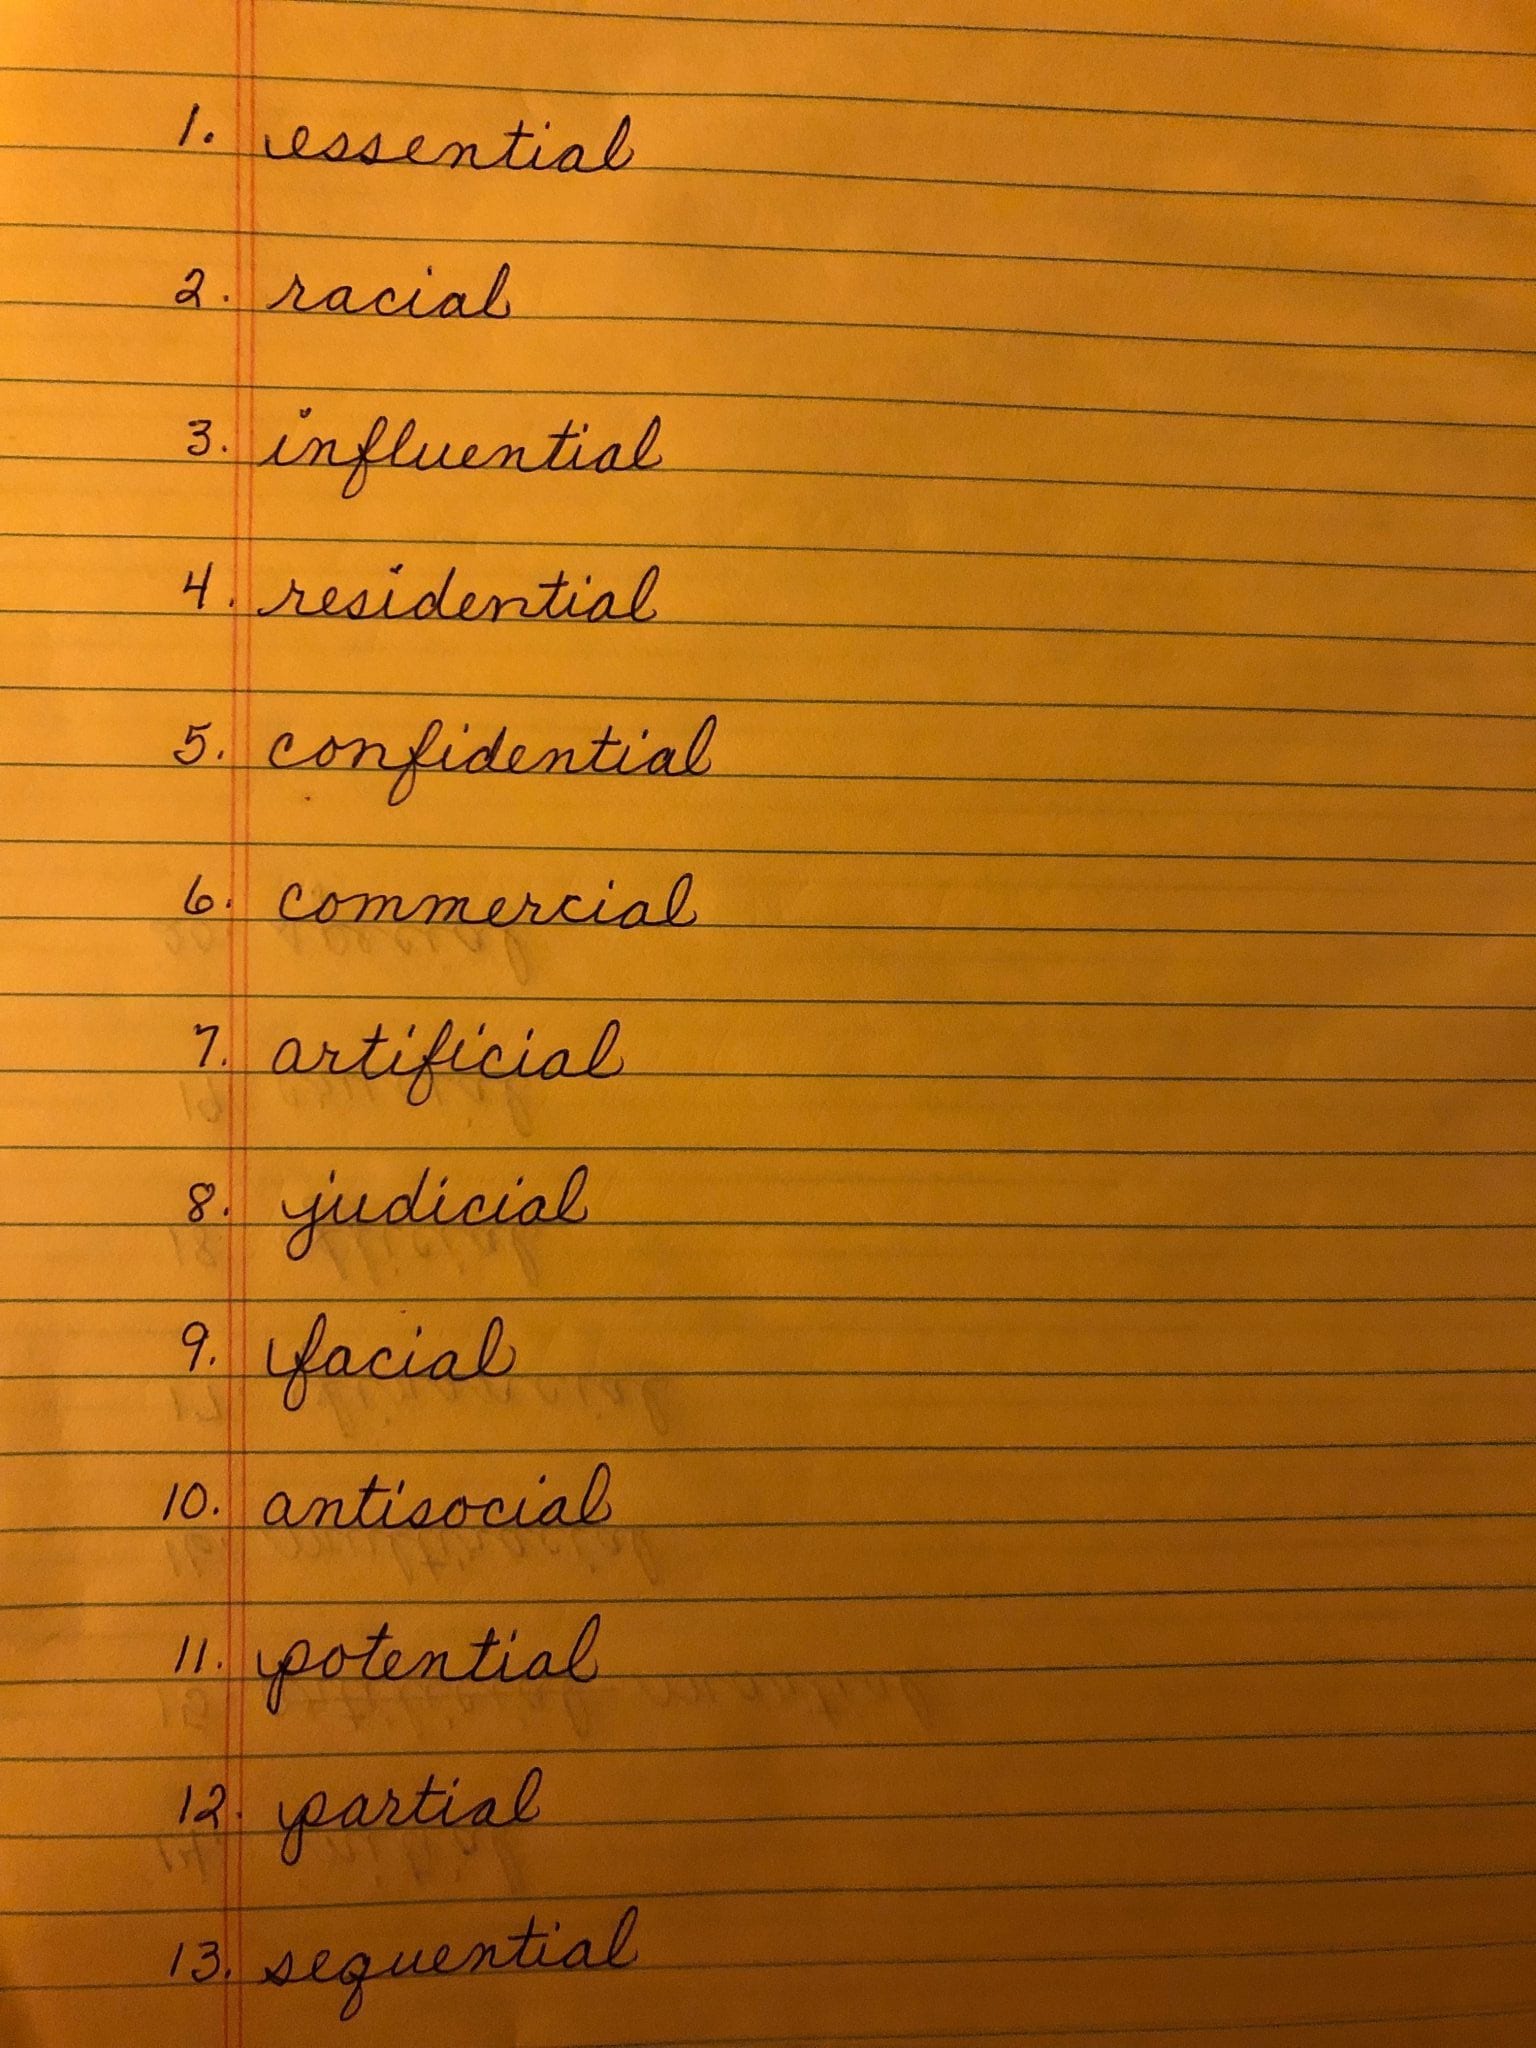 1. essential
2. racial
3. influential
4. residential
5. confidential
6. commercial
7. artificial
8. judicial
9. facial
10. antisocial
11. potential
12. partial
13. sequential